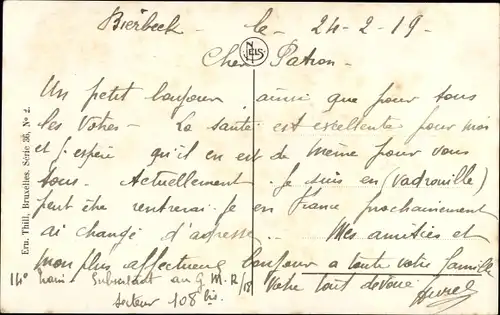 Bierbeek - le - 24-2-19-
NELS
Cher Patron-
Un petit bonjour, ainsi que pour tous
les Votres- La santé est excellente pour moi
et j'espère qu'il en est de Même pour vous
tous. Actuellement je suis en (Vadrouille)
peut être rentrerai-je en France prochainement
ai changé d'adresse. Mes amitiés et
mon plus affectueux bonjour a toute votre famille
Votre tout dévoué
14e train - au G M-R/18
secteur 108 bis.
Ern. Thill, Bruxelles, Série 36, No 2.